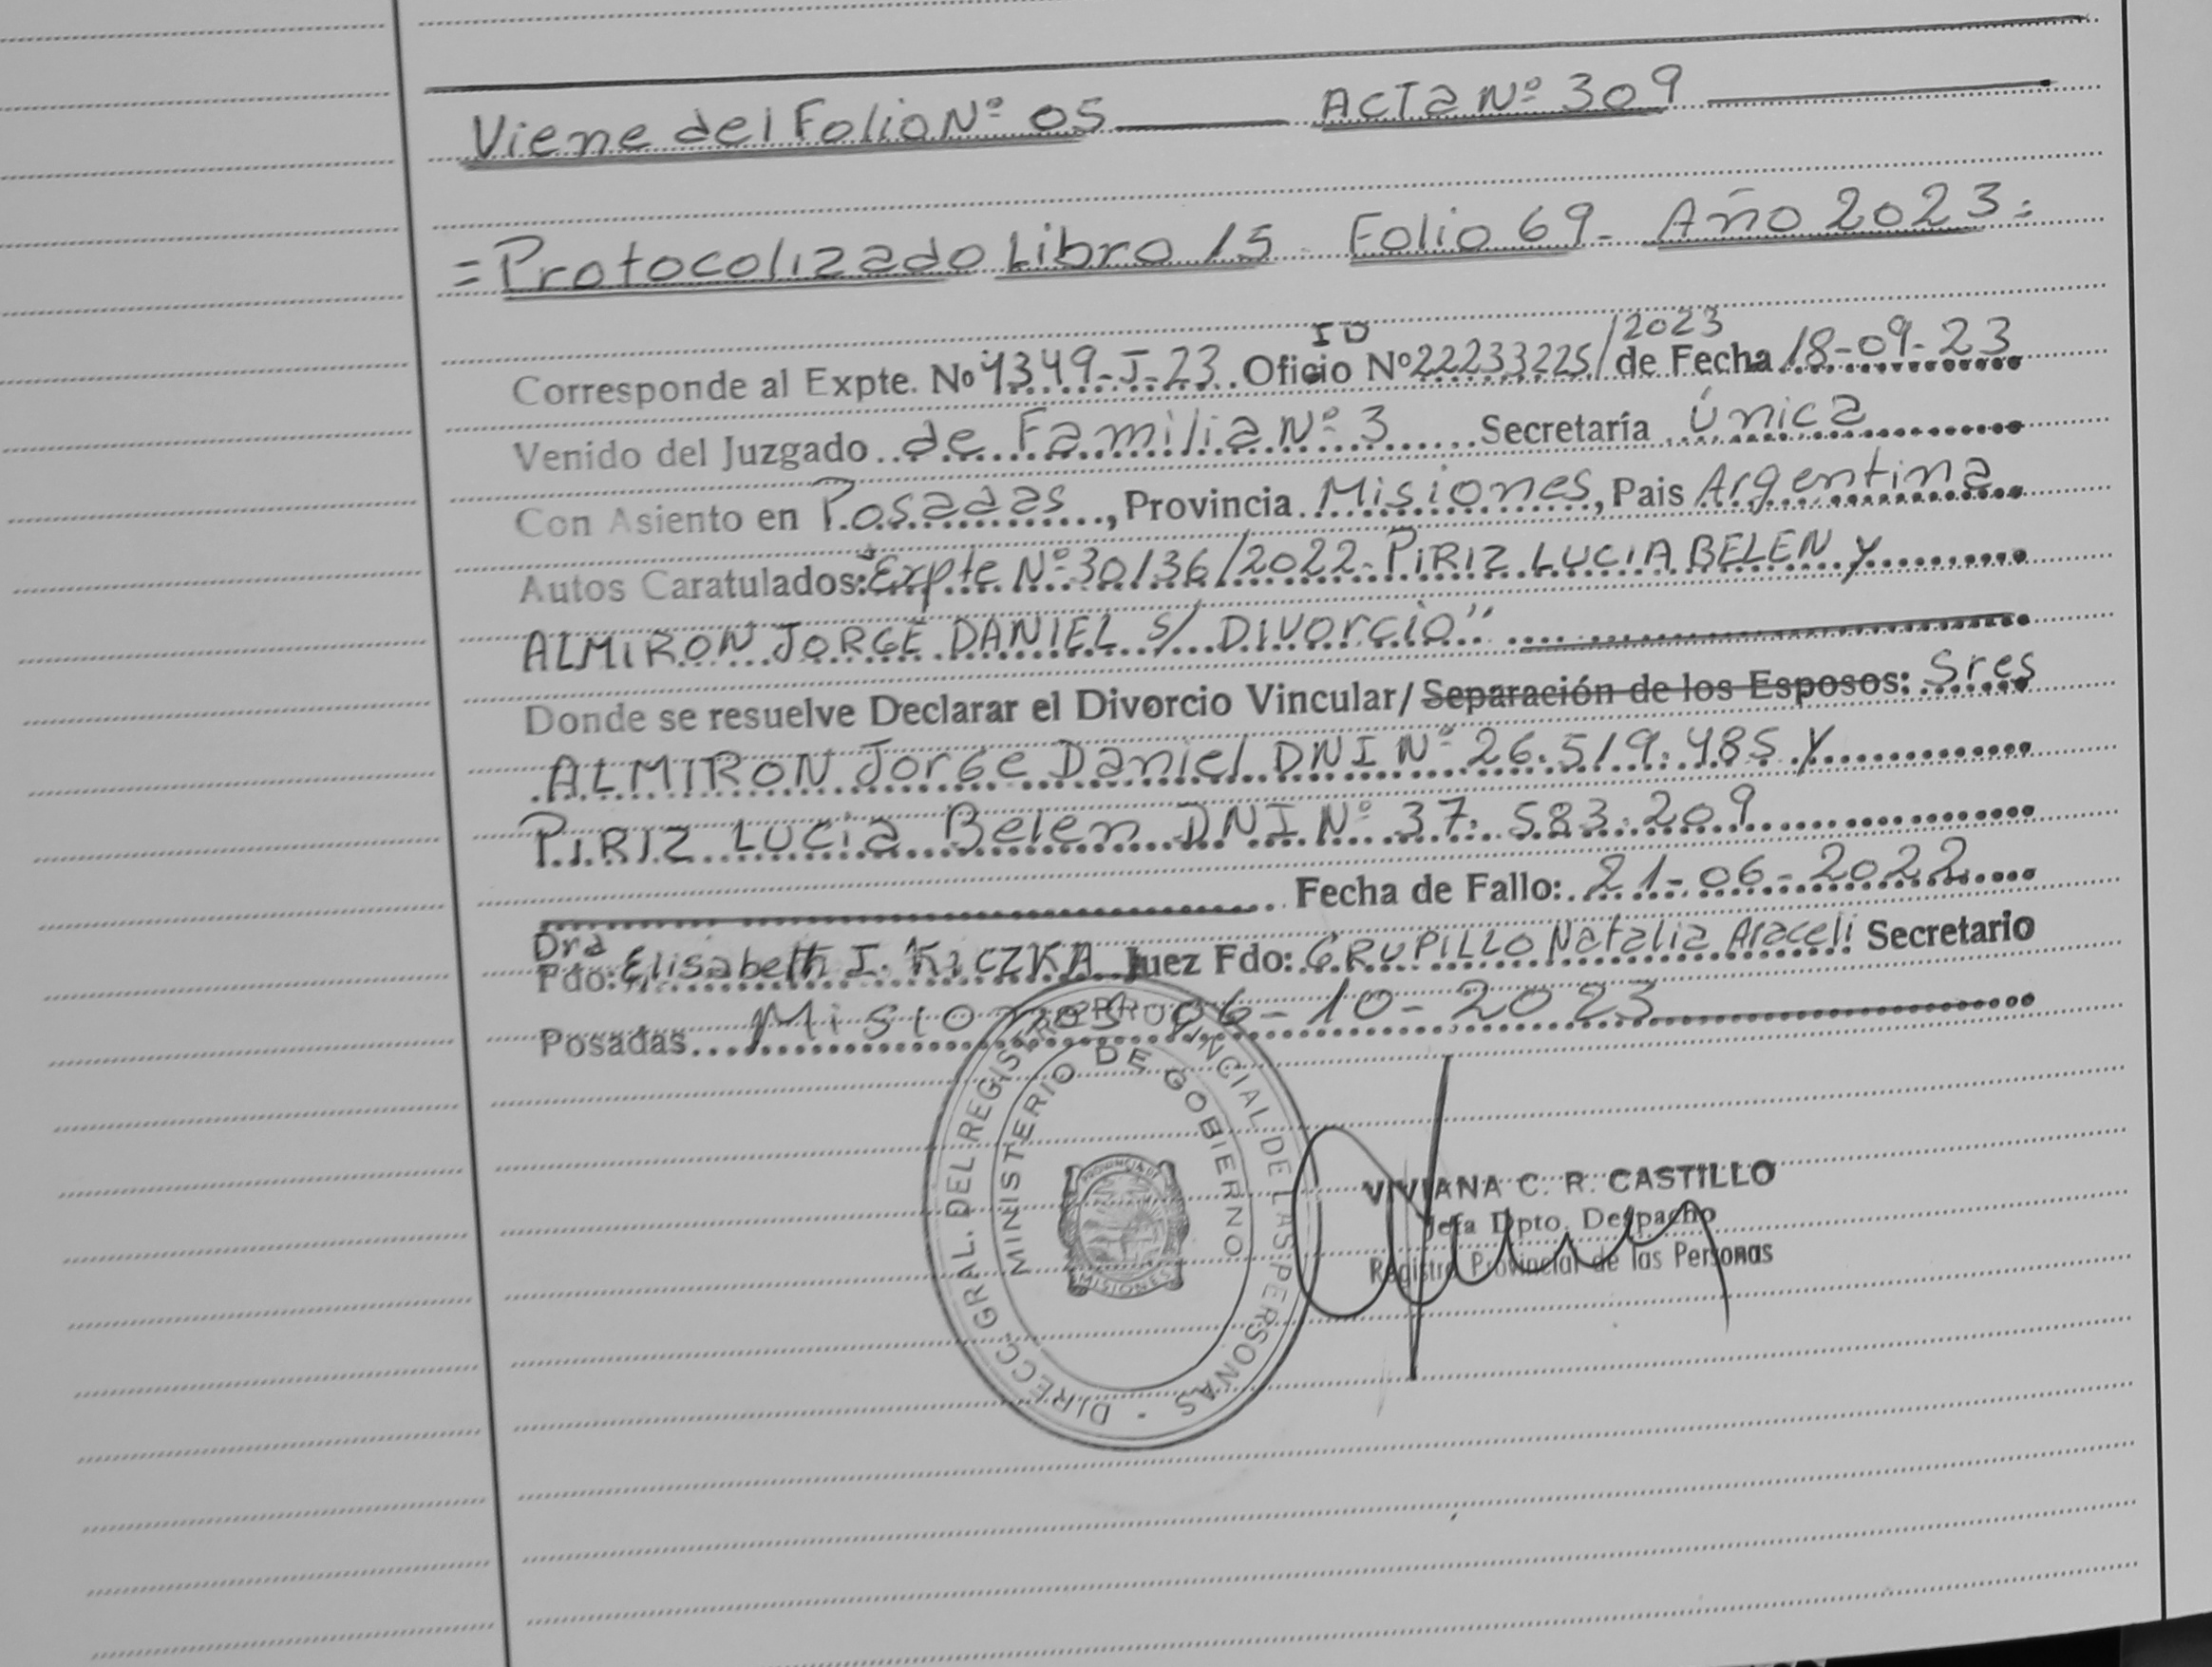 Viene del Folio Nº 05 Acta Nº 309
= Protocolizado Libro 15 - Folio 69 - Año 2023 =
ID /2023
Corresponde al Expte. Nº 4349-J-23 Oficio Nº 22233225/ de Fecha 18-09-23
Venido del Juzgado de Familia Nº 3 Secretaría Única
Con Asiento en Posadas, Provincia Misiones, Pais Argentina
Autos Caratulados: "Expte Nº 30136/2022- PIRIZ LUCIA BELEN y
ALMIRON JORGE DANIEL s/ Divorcio"
Donde se resuelve Declarar el Divorcio Vincular/ Separación de los Esposos: Sres
ALMIRON Jorge Daniel DNI Nº 26.519.485 y
PIRIZ Lucia Belen DNI Nº 37.583.209
Fecha de Fallo: 21-06-2022
Dra
Fdo: Elisabeth I. KICZKA Juez Fdo: GRUPILLO Natalia Araceli Secretario
Posadas Misiones 06-10-2023
DIRECC. GRAL. DEL REGISTRO PROVINCIAL DE LAS PERSONAS
MINISTERIO DE GOBIERNO
PROVINCIA DE
MISIONES
VIVIANA C. R. CASTILLO
Jefa Dpto. Despacho
Registro Provincial de las Personas